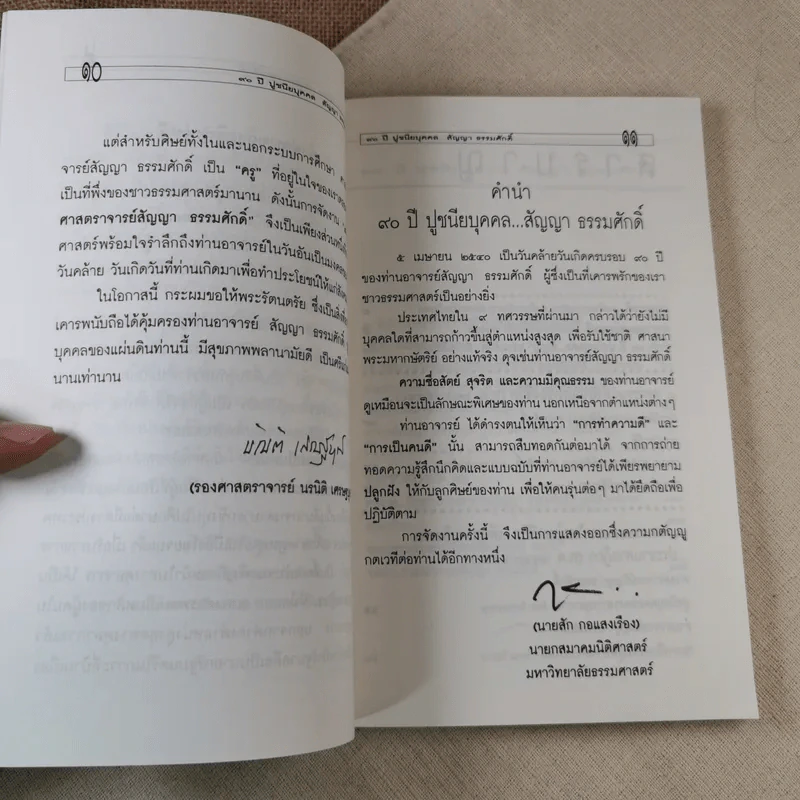 ๑๐
๙๐ ปี ปูชนียบุคคล สัญญา
แต่สำหรับศิษย์ทั้งในและนอกระบบการศึกษา
จารย์สัญญา ธรรมศักดิ์ เป็น "ครู" ที่อยู่ในใจของเรา
เป็นที่พึ่งของชาวธรรมศาสตร์มานาน ดังนั้นการจัดงาน
ศาสตราจารย์สัญญา ธรรมศักดิ์" จึงเป็นเพียงส่วนหนึ่ง
ศาสตร์พร้อมใจรำลึกถึงท่านอาจารย์ในวันอันเป็นมงคล
วันคล้าย วันเกิดวันที่ท่านเกิดมาเพื่อทำประโยชน์ให้แก่
ในโอกาสนี้ กระผมขอให้พระรัตนตรัย ซึ่งเป็นสิ่งที่
เคารพนับถือได้คุ้มครองท่านอาจารย์ สัญญา ธรรมศักดิ์
บุคคลของแผ่นดินท่านนี้ มีสุขภาพพลานามัยดี เป็น
นานเท่านาน
(รองศาสตราจารย์ นรนิติ
๙๐ ปี ปูชนียบุคคล สัญญา ธรรมศักดิ์
๑๑
คำนำ
๙๐ ปี ปูชนียบุคคล...สัญญา ธรรมศักดิ์
๕ เมษายน ๒๕๔๐ เป็นวันคล้ายวันเกิดครบรอบ ๙๐ ปี
ของท่านอาจารย์สัญญา ธรรมศักดิ์ ผู้ซึ่งเป็นที่เคารพรักของเรา
ชาวธรรมศาสตร์เป็นอย่างยิ่ง
ประเทศไทยใน ๙ ทศวรรษที่ผ่านมา กล่าวได้ว่ายังไม่มี
บุคคลใดที่สามารถก้าวขึ้นสู่ตำแหน่งสูงสุด เพื่อรับใช้ชาติ ศาสนา
พระมหากษัตริย์ อย่างแท้จริง ดุจเช่นท่านอาจารย์สัญญา ธรรมศักดิ์
ความซื่อสัตย์ สุจริต และความมีคุณธรรม ของท่านอาจารย์
ดูเหมือนจะเป็นลักษณะพิเศษของท่าน นอกเหนือจากตำแหน่งต่างๆ
ท่านอาจารย์ ได้ดำรงตนให้เห็นว่า "การทำความดี" และ
"การเป็นคนดี" นั้น สามารถสืบทอดกันต่อมาได้ จากการถ่าย
ทอดความรู้สึกนึกคิดและแบบฉบับที่ท่านอาจารย์ได้เพียรพยายาม
ปลูกฝัง ให้กับลูกศิษย์ของท่าน เพื่อให้คนรุ่นต่อๆ มาได้ยึดถือเพื่อ
ปฏิบัติตาม
การจัดงานครั้งนี้ จึงเป็นการแสดงออกซึ่งความกตัญญู
กตเวทีต่อท่านได้อีกทางหนึ่ง
(นายสัก กอแสงเรือง)
นายกสมาคมนิติศาสตร์
มหาวิทยาลัยธรรมศาสตร์